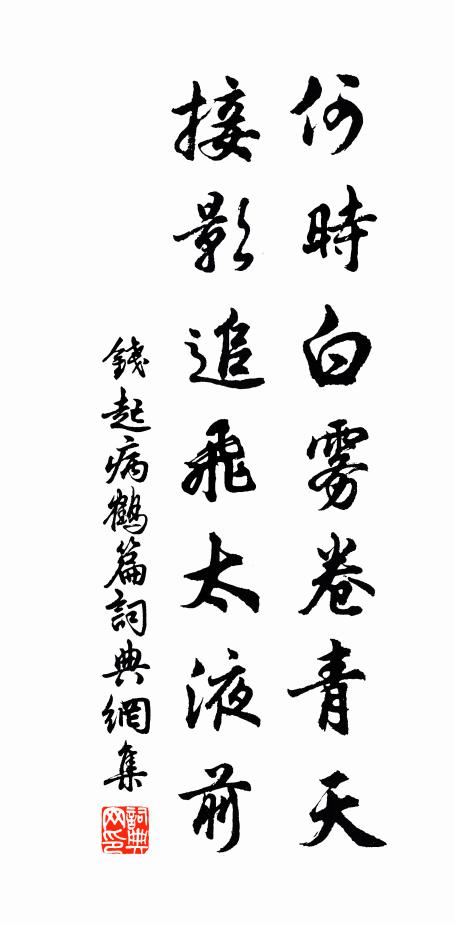 何時白雾卷青天
接影追飛太液前
錢起病鶴篇詞典網集
詞典网印